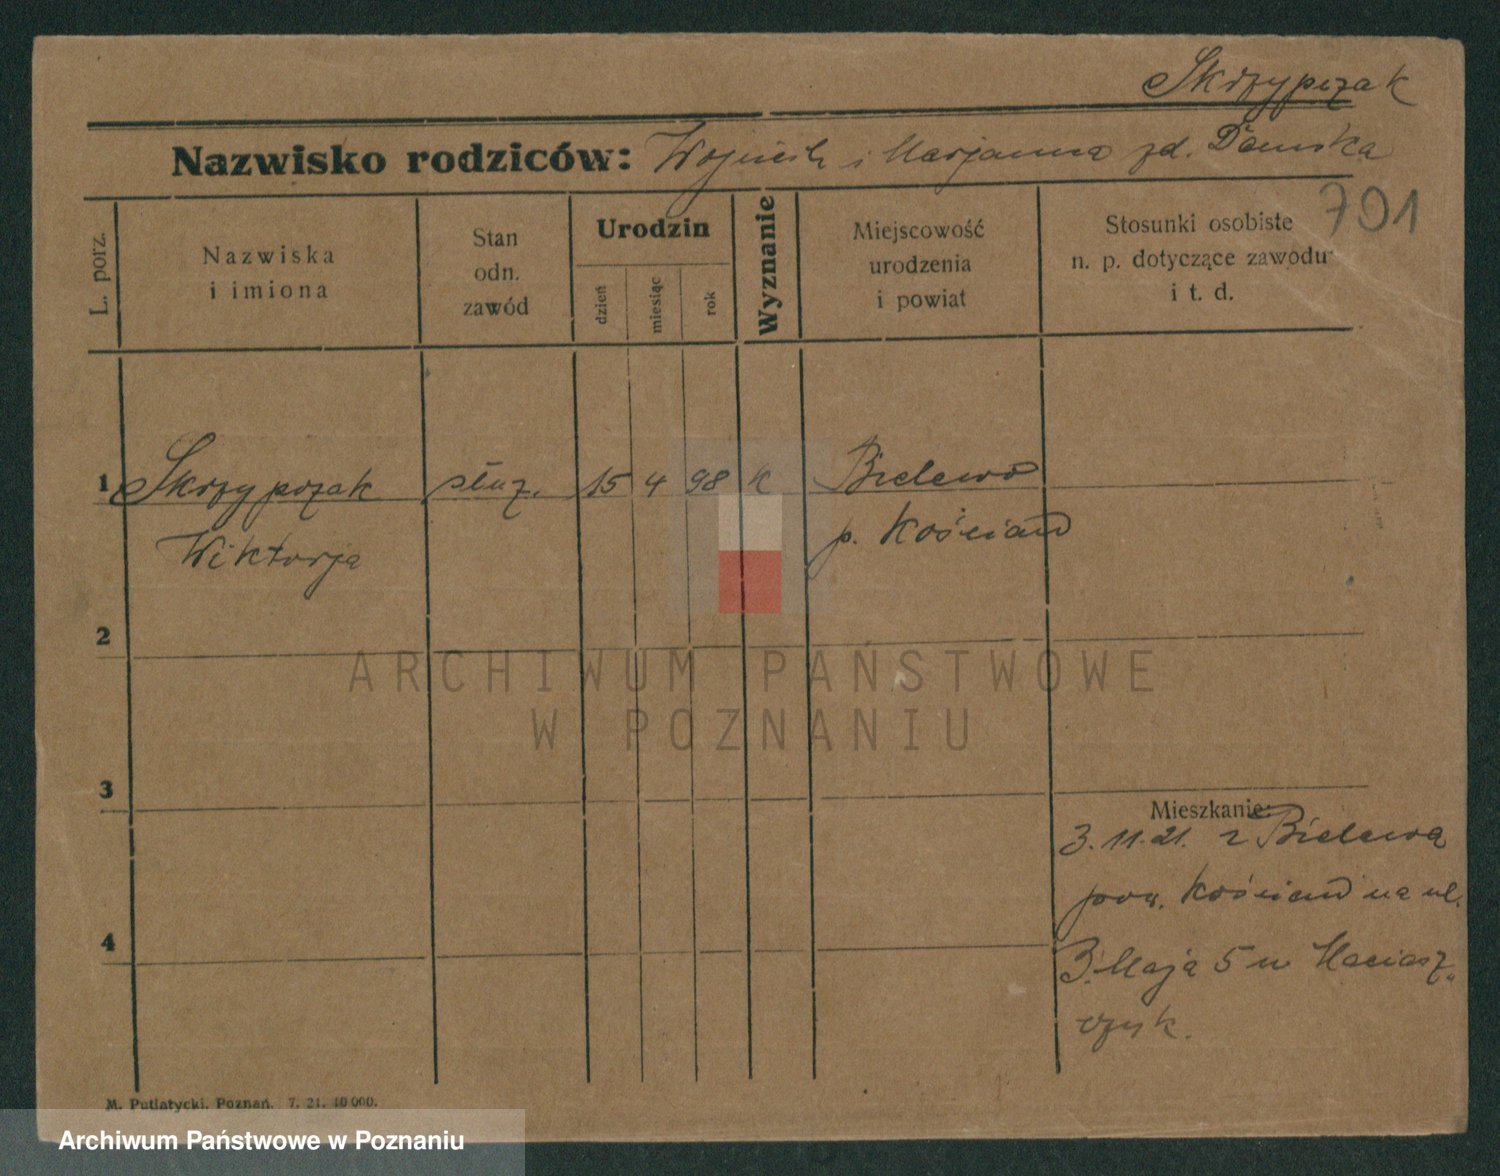 Skrzypczak
Nazwisko rodziców: Wojciech i Marjanna zd. Dańska
701
L. porz.
Nazwiska
i imiona
Stan
odn.
zawód
Urodzin
dzień
miesiąc
rok
Wyznanie
Miejscowość
urodzenia
i powiat
Stosunki osobiste
n. p. dotyczące zawodu
i t. d.
1 Skrzypczak służ. 15 4 98 k Bielewo
Wiktorja p. Kościan
2
ARCHIWUM PAŃSTWOWE
W POZNANIU
3
Mieszkanie:
3.11.21. z Bielewa
pow. Kościan na ul.
3. Maja 5 u Maciasz„
czyk.
4
M. Putiatycki, Poznań. 7. 21. 10 000.
Archiwum Państwowe w Poznaniu